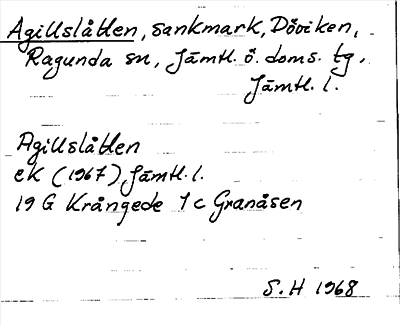 Agillslåtten, sankmark, Döviken,
Ragunda sn, Jämtl. ö. doms. tg,
Jämtl. l.
Agillslåtten
ek (1967) Jämtl. l.
19 G Krångede 7 c Granåsen
S. H 1968